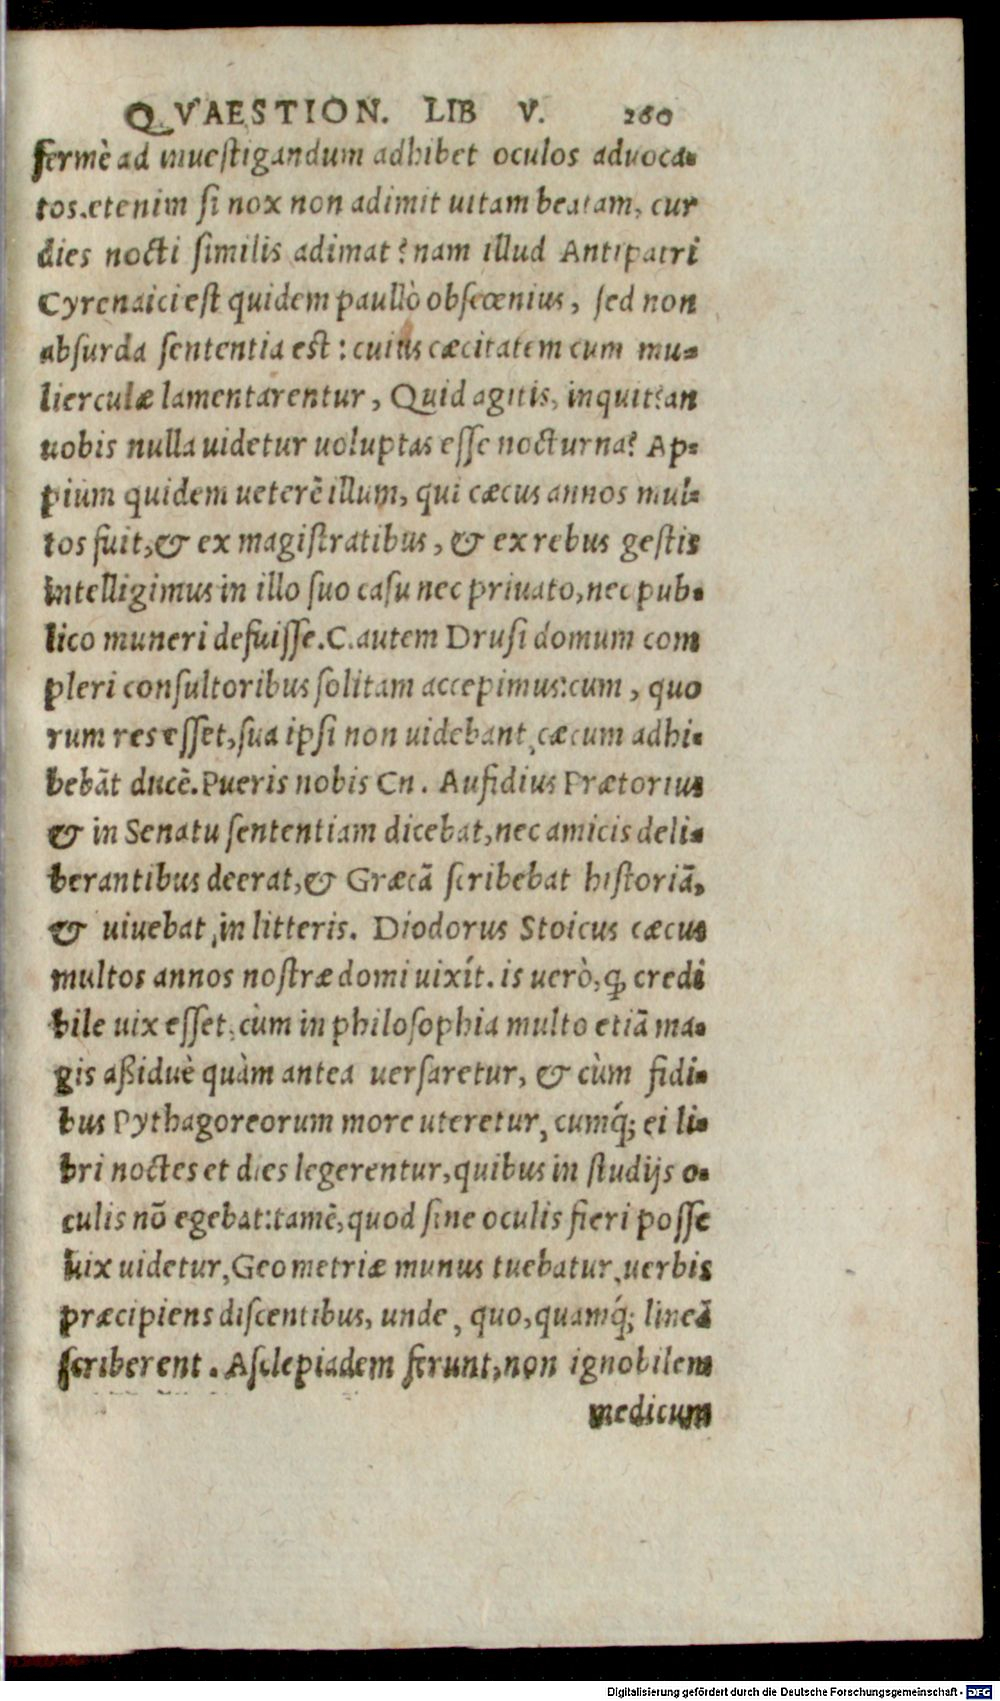 QVAESTION. LIB V. 260
fermè ad inuestigandum adhibet oculos aduoca-
tos.etenim si nox non adimit uitam beatam, cur
dies nocti similis adimat? nam illud Antipatri
Cyrenaici est quidem paullò obscœnius, sed non
absurda sententia est: cuius cæcitatem cum mu-
lierculæ lamentarentur, Quid agitis, inquit?an
uobis nulla uidetur uoluptas esse nocturna? Ap-
pium quidem ueterē illum, qui cæcus annos mul-
tos fuit,& ex magistratibus, & ex rebus gestis
intelligimus in illo suo casu nec priuato,nec pub-
lico muneri defuisse.C.autem Drusi domum com
pleri consultoribus solitam accepimus:cum, quo
rum res esset,sua ipsi non uidebant,cæcum adhi-
bebāt ducē.Pueris nobis Cn. Aufidius Prætorius
& in Senatu sententiam dicebat,nec amicis deli-
berantibus deerat,& Græcā scribebat historiā,
& uiuebat,in litteris. Diodorus Stoicus cæcus
multos annos nostræ domi uixit. is uerò,ꝙ credi
bile uix esset,cùm in philosophia multo etiā ma-
gis aßiduè quàm antea uersaretur, & cùm fidi-
bus Pythagoreorum more uteretur, cumq́; ei li-
bri noctes et dies legerentur,quibus in studijs o-
culis nō egebat:tamē,quod sine oculis fieri posse
uix uidetur,Geometriæ munus tuebatur,uerbis
præcipiens discentibus, unde, quo,quamq́; lineā
scriberent. Asclepiadem ferunt,non ignobilem
medicum
Digitalisierung gefördert durch die Deutsche Forschungsgemeinschaft - DFG